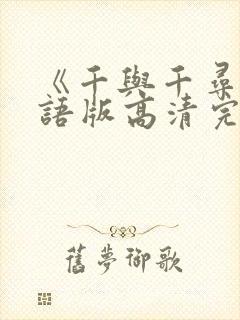 《千與千尋
語版高清完
舊夢御歌